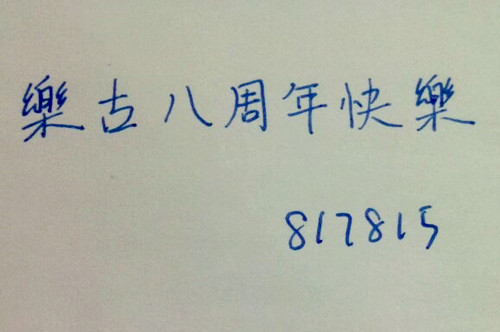 樂古八周年快樂
817815